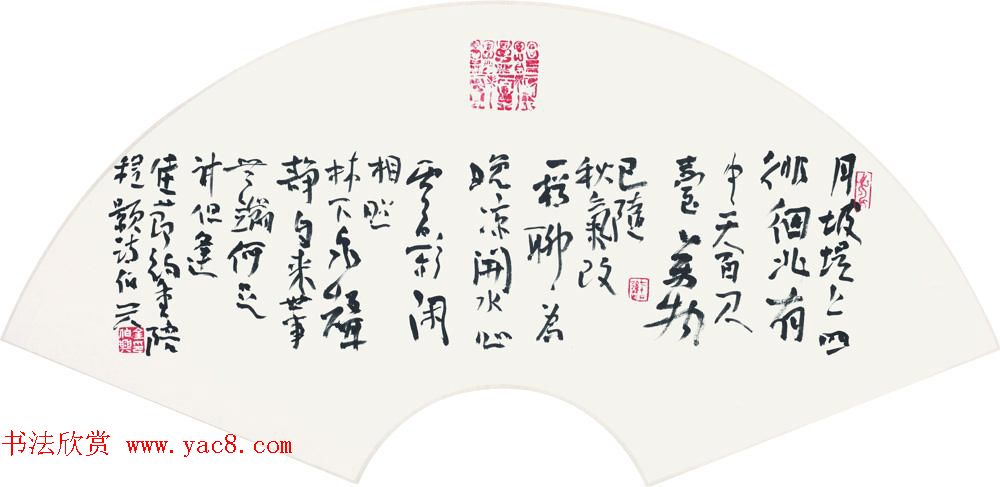 月坡堤上四
徘徊北有
中天百尺
臺萬物
已隨
秋氣改
一樽聊为
晚凉開水心
雲影闲
相照
林下泉聲
静自来世事
無端何足
計但逢
佳節約重陪
程颢诗伯兴
书法欣赏 www.yac8.com